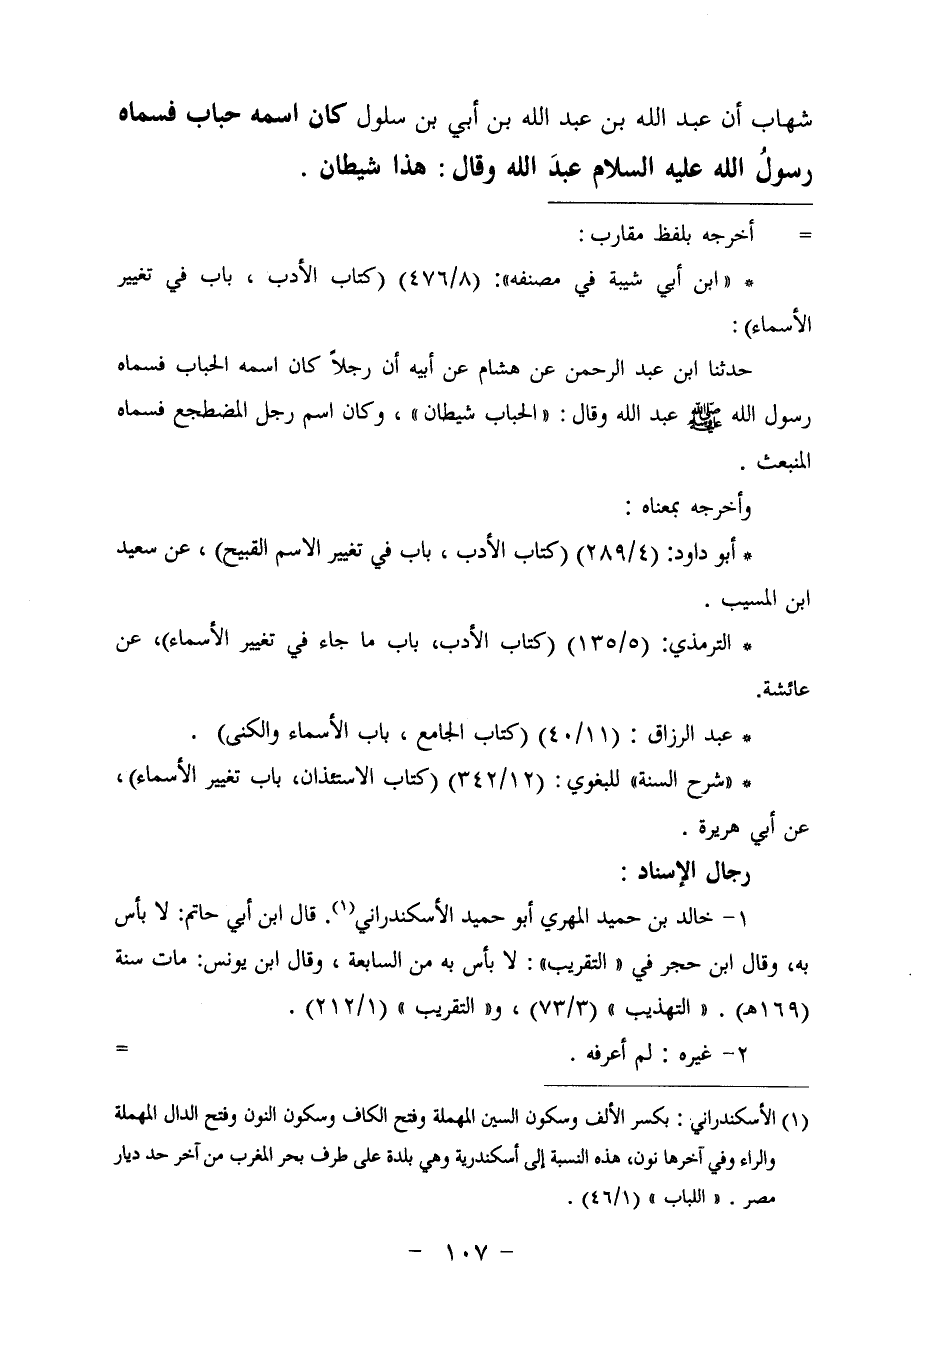 شهاب أن عبد الله بن عبد الله بن أبي بن سلول كان اسمه حباب فسماه
رسولُ الله عليه السلام عبدَ الله وقال : هذا شيطان .
= أخرجه بلفظ مقارب :
* «ابن أبي شيبة في مصنفه»: (٤٧٦/٨) (كتاب الأدب ، باب في تغيير
الأسماء) :
حدثنا ابن عبد الرحمن عن هشام عن أبيه أن رجلاً كان اسمه الحباب فسماه
رسول الله ﷺ عبد الله وقال : «الحباب شيطان» ، وكان اسم رجل المضطجع فسماه
المنبعث .
وأخرجه بمعناه :
* أبو داود: (٢٨٩/٤) (كتاب الأدب ، باب في تغيير الاسم القبيح) ، عن سعيد
ابن المسيب .
* الترمذي: (١٣٥/٥) (كتاب الأدب، باب ما جاء في تغيير الأسماء)، عن
عائشة.
* عبد الرزاق : (٤٠/١١) (كتاب الجامع ، باب الأسماء والكنى) .
* «شرح السنة» للبغوي : (٣٤٢/١٢) (كتاب الاستئذان، باب تغيير الأسماء)،
عن أبي هريرة .
رجال الإسناد :
١- خالد بن حميد المهري أبو حميد الأسكندراني(١). قال ابن أبي حاتم: لا بأس
به، وقال ابن حجر في « التقريب» : لا بأس به من السابعة ، وقال ابن يونس: مات سنة
(١٦٩هـ) . « التهذيب » (٧٣/٣) ، و« التقريب » (٢١٢/١) .
٢- غيره : لم أعرفه . =
(١) الأسكندراني : بكسر الألف وسكون السين المهملة وفتح الكاف وسكون النون وفتح الدال المهملة
والراء وفي آخرها نون، هذه النسبة إلى أسكندرية وهي بلدة على طرف بحر المغرب من آخر حد ديار
مصر . « اللباب » (٤٦/١) .
- ١٠٧ -